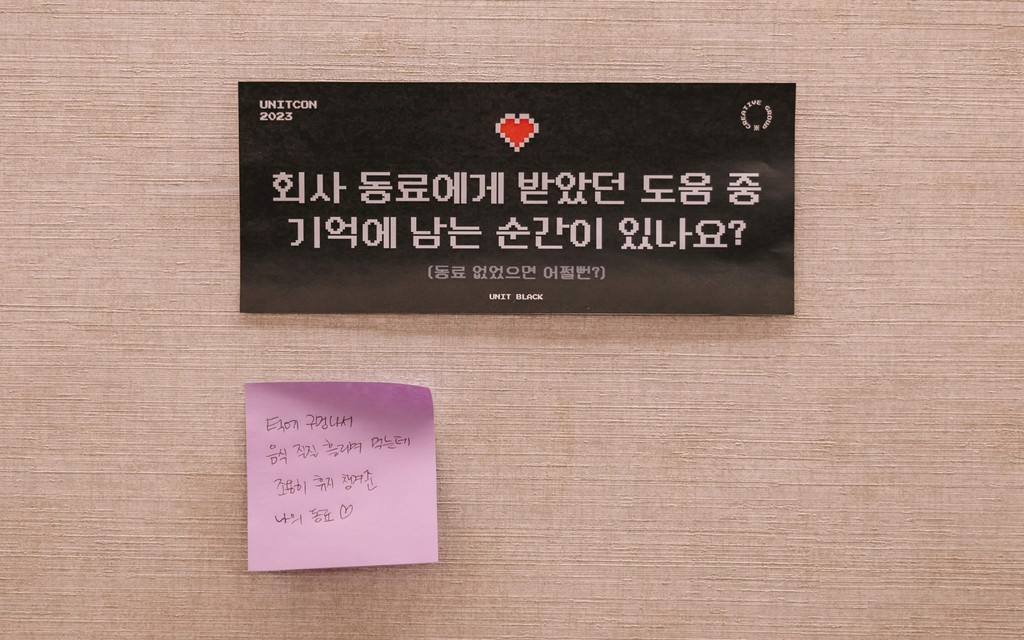 UNITCON
2023
CREATIVE GROUP ※
회사 동료에게 받았던 도움 중
기억에 남는 순간이 있나요?
(동료 없었으면 어쩔뻔?)
UNIT BLACK
턱에 구멍나서
음식 질질 흘리며 먹는데
조용히 휴지 챙겨준
나의 동료♡